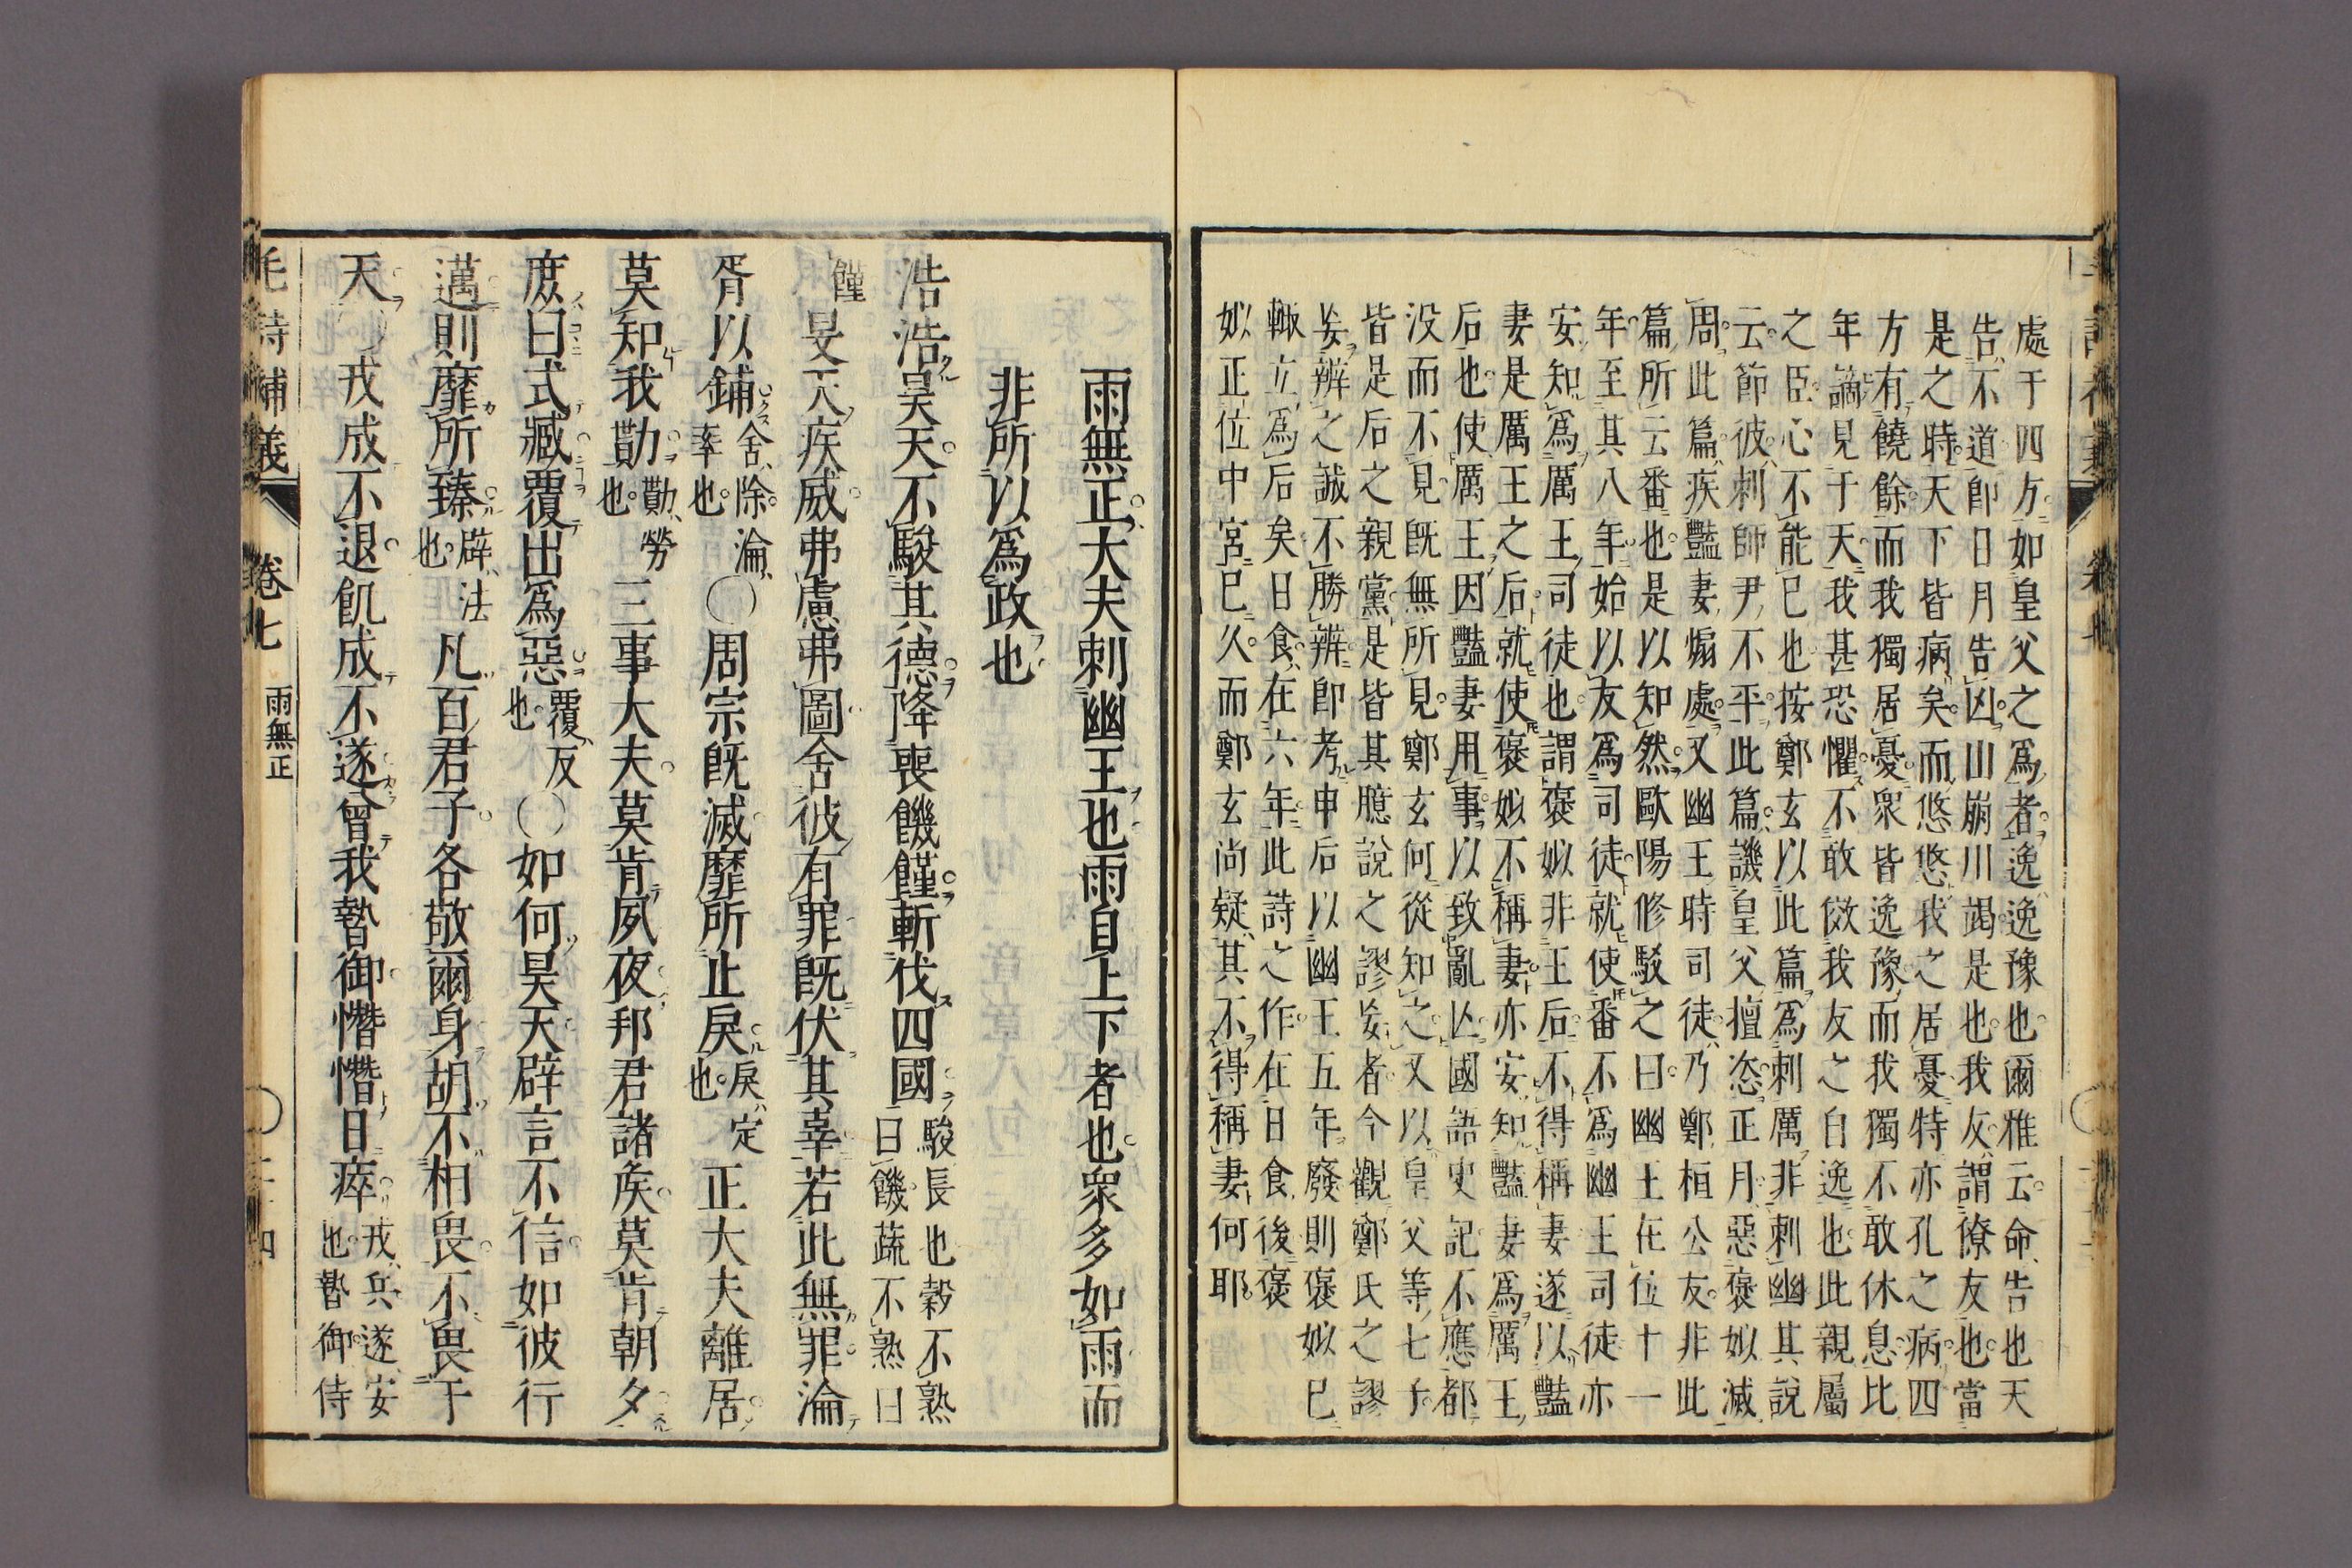 處于四方如皇父之爲者逸逸豫也爾雅云命告也天
告不道卽日月告凶山崩川竭是也我友謂僚友也當
是之時天下皆病矣而悠悠我之居憂特亦孔之病四
方有饒餘而我獨居憂衆皆逸豫而我獨不敢休息比
年謫見于天我甚恐懼不敢傚我友之自逸也此親屬
之臣心不能已也按鄭玄以此篇爲刺厲非刺幽其說
云節彼刺師尹不平此篇譏皇父擅恣正月惡褒姒滅
周此篇疾豔妻煽處又幽王時司徒乃鄭桓公友非此
篇所云番也是以知然歐陽修駁之曰幽王在位十一
年至其八年始以友爲司徒就使番不爲幽王司徒亦
安知爲厲王司徒也謂褒姒非王后不得稱妻遂以豔
妻是厲王之后就使褒姒不稱妻亦安知豔妻爲厲王
后也使厲王因豔妻用事以致亂亾國語史記不應都
没而不見旣無所見鄭玄何從知之又以皇父等七子
皆是后之親黨是皆其臆說之謬妄者今觀鄭氏之謬
妄辨之誠不勝辨卽考申后以幽王五年廢則褒姒已
輙立爲后矣日食在六年此詩之作在日食後褒
姒正位中宮已久而鄭玄尚疑其不得稱妻何耶
雨無正大夫刺幽王也雨自上下者也衆多如雨而
非所以爲政也
浩浩昊天不駿其德降喪饑饉斬伐四國駿長也穀不熟
曰饑蔬不熟曰
饉旻天疾威弗慮弗圖舍彼有罪旣伏其辜若此無罪淪
胥以鋪舍除淪
率也〇周宗旣滅靡所止戾戾定
也正大夫離居
莫知我勩勩勞
也三事大夫莫肯夙夜邦君諸矦莫肯朝夕
庶曰式臧覆出爲惡覆反
也〇如何昊天辟言不信如彼行
邁則靡所臻辟法
也凡百君子各敬爾身胡不相畏不畏于
天〇戎成不退飢成不遂曾我暬御憯憯日瘁戎兵遂安
也暬御侍
毛詩補義 卷七 雨無正